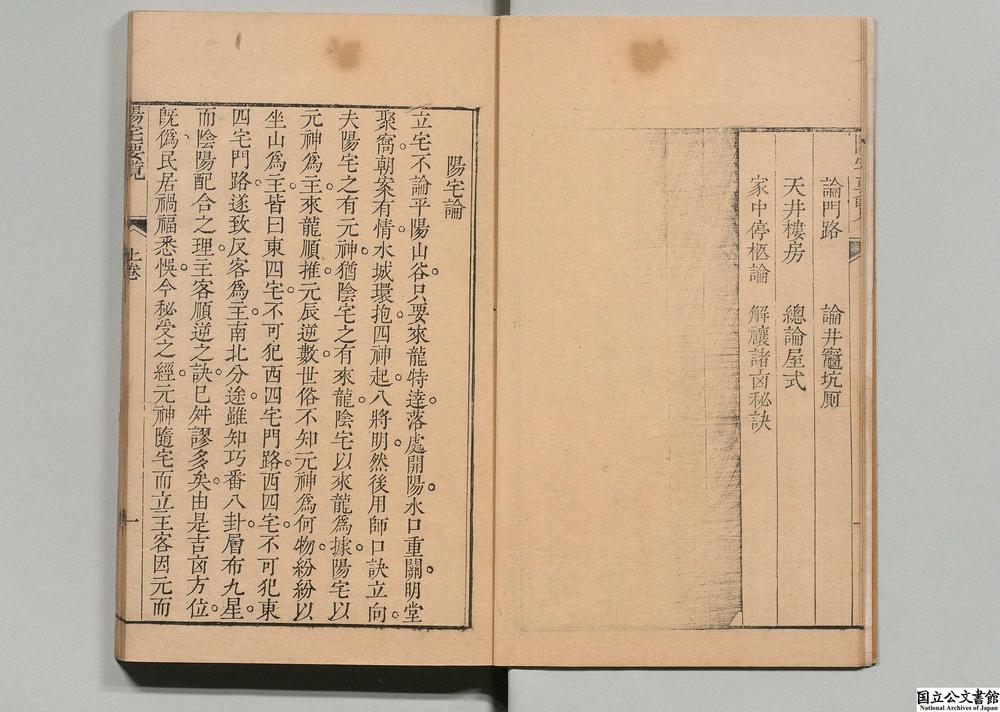 論門路　論井竈坑厠
天井樓房　總論屋式
家中停柩論　解禳諸凶秘訣
陽宅論
立宅不論平陽山谷只要來龍特達落處開陽水口重關明堂
聚窩朝案有情水城環抱四神起八將明然後用師口訣立向
夫陽宅之有元神猶陰宅之有來龍陰宅以來龍爲據陽宅以
元神爲主來龍順推元辰逆數世俗不知元神爲何物紛紛以
坐山爲主皆曰東四宅不可犯西四宅門路西四宅不可犯東
四宅門路遂致反客爲主南北分途雖知巧番八卦層布九星
而陰陽配合之理主客順逆之訣已舛謬多矣由是吉凶方位
旣僞民居禍福悉悞今秘受之經元神隨宅而立主客因元而
陽宅要覽　上卷　一
国立公文書館
National Archives of Japan